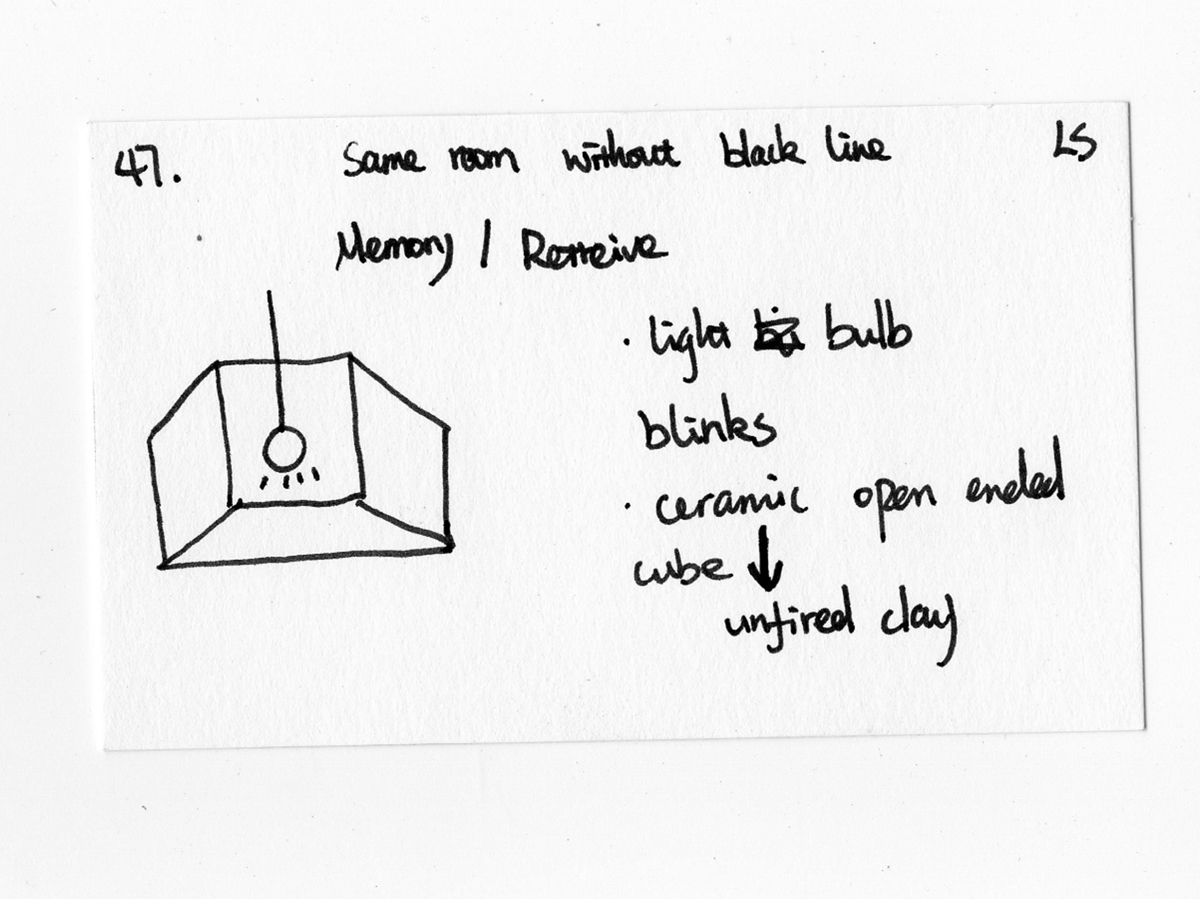 47. Same room without black line LS
Memory / Retreive
· light bulb
blinks
· ceramic open ended
cube ↓
unfired clay